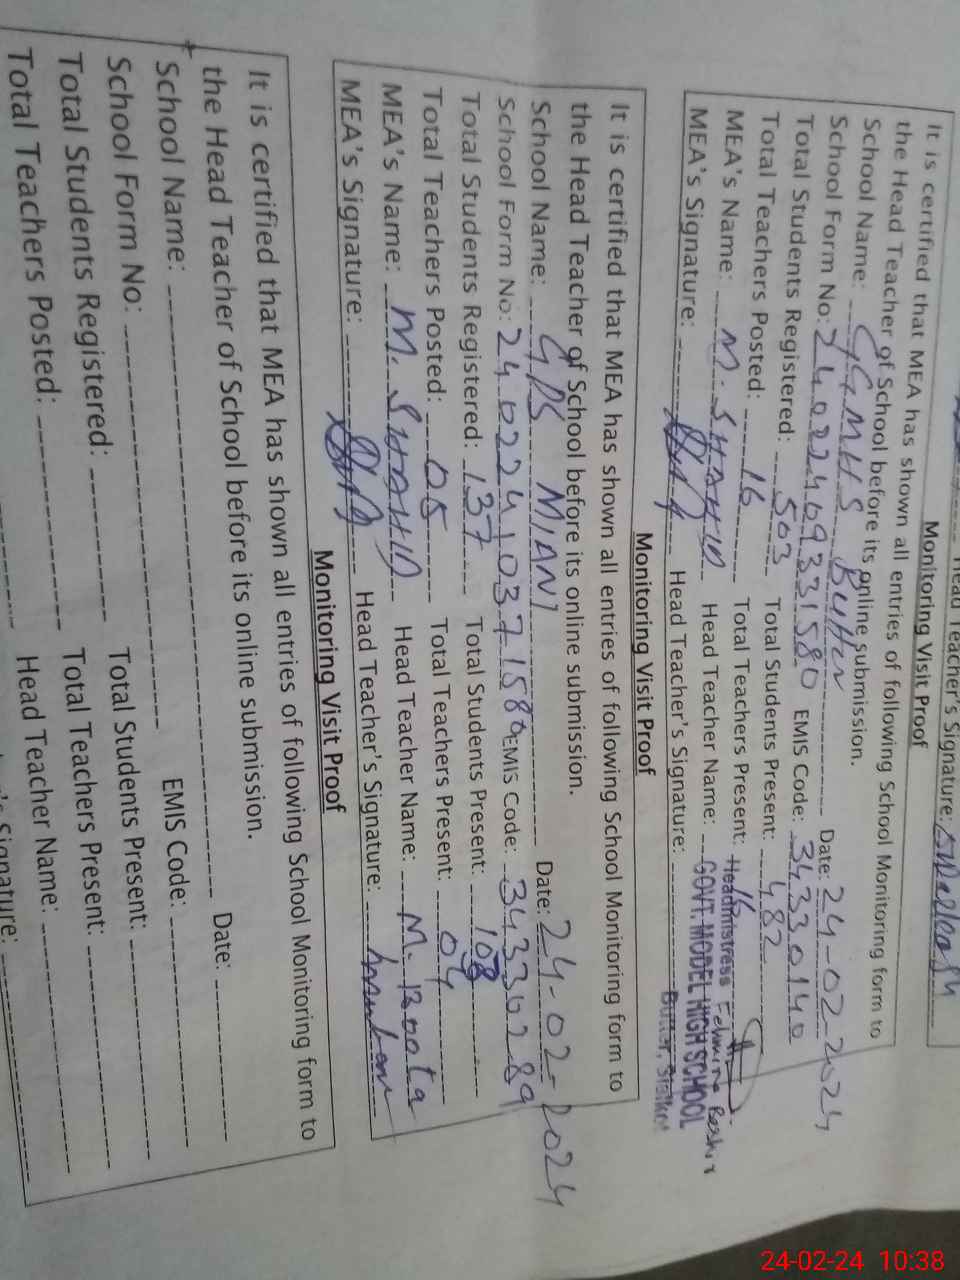 Head Teacher's Signature:
Monitoring Visit Proof
It is certified that MEA has shown all entries of following School Monitoring form to
the Head Teacher of School before its online submission.
School Name: GGMHS BUHN Date: 24-02-2024
School Form No: 24022409331580 EMIS Code: 34330140
Total Students Registered: 503 Total Students Present: 482
Total Teachers Posted: 16 Total Teachers Present: 16
MEA's Name: M. SHAHID Head Teacher Name: Headmistress
GOVT. MODEL HIGH SCHOOL
MEA's Signature: Head Teacher's Signature:
Monitoring Visit Proof
It is certified that MEA has shown all entries of following School Monitoring form to
the Head Teacher of School before its online submission.
School Name: GPS MIANI Date: 24-02-2024
School Form No: 24022410371580 EMIS Code: 34330289
Total Students Registered: 137 Total Students Present: 108
Total Teachers Posted: 05 Total Teachers Present: 04
MEA's Name: M. SHAHID Head Teacher Name: M. Boota
MEA's Signature: Head Teacher's Signature:
Monitoring Visit Proof
It is certified that MEA has shown all entries of following School Monitoring form to
the Head Teacher of School before its online submission.
School Name: Date:
School Form No: EMIS Code:
Total Students Registered: Total Students Present:
Total Teachers Posted: Total Teachers Present:
Head Teacher Name:
Signature:
24-02-24 10:38